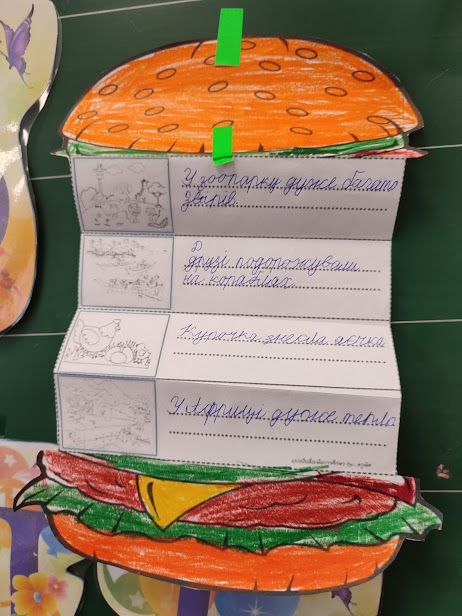 У зоопарку дуже багато
звірів.
Д
друзі подорожували
на кораблях.
Курочка знесла яєчка
У Африці дуже тепло